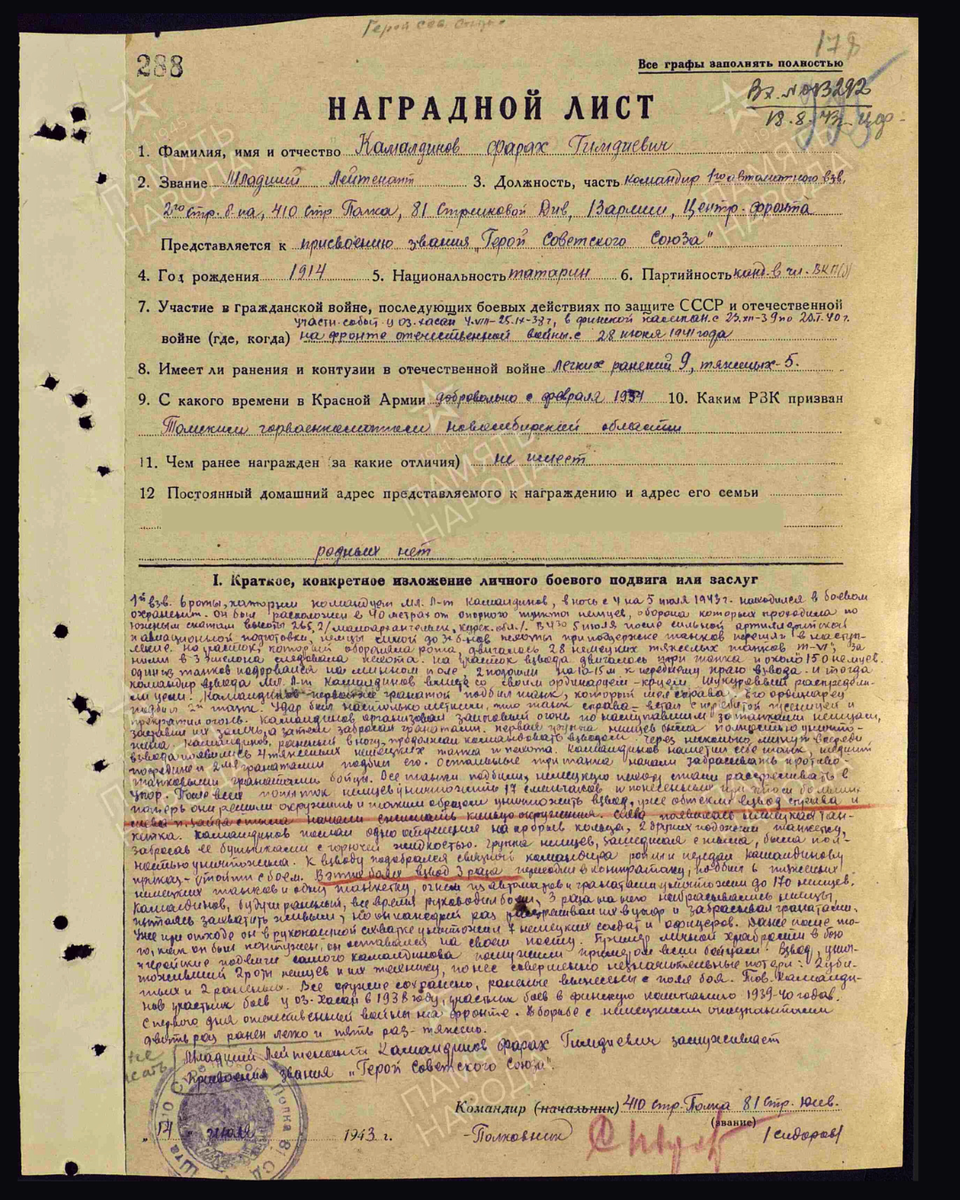 Герой Сов. Союза
178
288
Все графы заполнять полностью
Вх. № 013292
13.8.43
НАГРАДНОЙ ЛИСТ
1. Фамилия, имя и отчество Камалдинов Фарах Гимдиевич
2. Звание Младший Лейтенант 3. Должность, часть командир 1го автоматного взв.
2го стр. б-на, 410 стр. Полка, 81 Стрелковой Див, 13 армии, Центр. фронта
Представляется к присвоению звания "Герой Советского Союза"
4. Год рождения 1914 5. Национальность татарин 6. Партийность канд. в чл. ВКП(б)
7. Участие в гражданской войне, последующих боевых действиях по защите СССР и отечественной
участн. событ. у оз. Хасан в финской кампан. с
войне (где, когда) на фронте отечественной войны с 28 июня 1941 года
8. Имеет ли ранения и контузии в отечественной войне легких ранений 9, тяжелых - 5.
9. С какого времени в Красной Армии добровольно с февраля 10. Каким РЗК призван
Томским горвоенкоматом Новосибирской области
11. Чем ранее награжден (за какие отличия) не имеет
12 Постоянный домашний адрес представляемого к награждению и адрес его семьи
родных нет
I. Краткое, конкретное изложение личного боевого подвига или заслуг
1й взв. роты, которым командует мл. л-т Камалдинов, в ночь с 4 на 5 июля 1943 г. находился в боевом
охранении. Он был расположен в 40 метрах от опорного пункта немцев, оборона которых проходила по
южным скатам высоты В 5 июля после сильной артиллерийской
и авиационной подготовки, немцы силой до б-нов пехоты при поддержке танков перешли в наступ-
ление. На участок, который обороняла рота, двигалось 28 немецких тяжелых танков За
ними в 3 эшелона следовала пехота. На участок взвода двигалось три танка и около 150 немцев.
Один из танков подорвался на минном поле, 2 подошли на 10-15 м к переднему краю взвода и тогда
командир взвода мл. л-т Камалдинов вместе со своим ординарцем кр-цем Шукуровым распредели-
ли цели. Камалдинов первой гранатой подбил танк, который шел справа, его ординарец
подбил 2й танк. Удар был настолько метким, что танк справа встал с перебитой гусеницей и
прекратил огонь. Камалдинов организовал залповый огонь по наступавшим за танками немцам,
заставил их залечь, а затем забросал гранатами, первая группа немцев была полностью уничто-
жена. Камалдинов, раненый в ногу, продолжал командовать взводом. Через несколько минут перед
взводом появились 4 тяжелых немецких танка и пехота. Камалдинов наметил себе танк, идущий
посредине и 2мя гранатами подбил его. Остальные три танка начали забрасывать противо-
танковыми гранатами бойцы. Все танки подбили, немецкую пехоту стали расстреливать в
упор. После всех попыток немцев уничтожить 17 смельчаков и понесенных при этом больших
потерь они решили окружить и таким образом уничтожить взвод, уже обтекли взвод справа и
слева и, зайдя с тыла начали сжимать кольцо окружения. Слева появилась немецкая тан-
кетка. Камалдинов послал одно отделение на прорыв кольца, 2 других подожгли танкетку,
забросав ее бутылками с горючей жидкостью. Группа немцев, зашедшая с тыла, была пол-
ностью уничтожена. К взводу подобрался связной командира роты и передал Камалдинову
приказ - отойти с боем. В этом бою взвод 3 раза переходил в контратаку, подбил 6 тяжелых
немецких танков и одну танкетку, огнем из автоматов и гранатами уничтожили до 170 немцев.
Камалдинов, будучи раненый, все время руководил боем, 3 раза на него набрасывались немцы,
пытаясь захватить живым, но он каждый раз расстреливал их в упор и забрасывал гранатами.
Уже при отходе он в рукопашной схватке уничтожил 7 немецких солдат и офицеров. Даже после то-
го, как он был контужен, он оставался на своем посту. Пример личной храбрости в бою
и геройские подвиги самого Камалдинова послужили примером всем бойцам. Взвод, унич-
тоживший 2 роты немцев и их технику, понес совершенно незначительные потери: 2 уби-
тых и 2 раненых. Все оружие сохранено, раненые вынесены с поля боя. Тов. Камалди-
нов участник боев у оз. Хасан в 1938 году, участник боев в финскую кампанию 1939-40 годов.
С первого дня отечественной войны на фронте. В борьбе с немецкими оккупантами
девять раз ранен легко и пять раз - тяжело.
Младший Лейтенант Камалдинов Фарах Гимдиевич заслуживает
присвоения звания "Герой Советского Союза".
Командир (начальник) 410 стр. Полка 81 стр. див.
(звание)
"17" июля 1943 г. Полковник /Сидоров/
ПАМЯТЬ НАРОДА